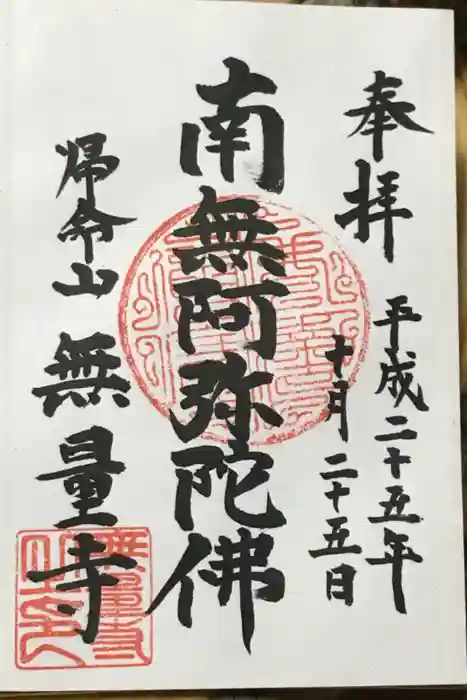 奉拝
平成二十五年
十月二十五日
南無阿弥陀佛
帰命山無量寺